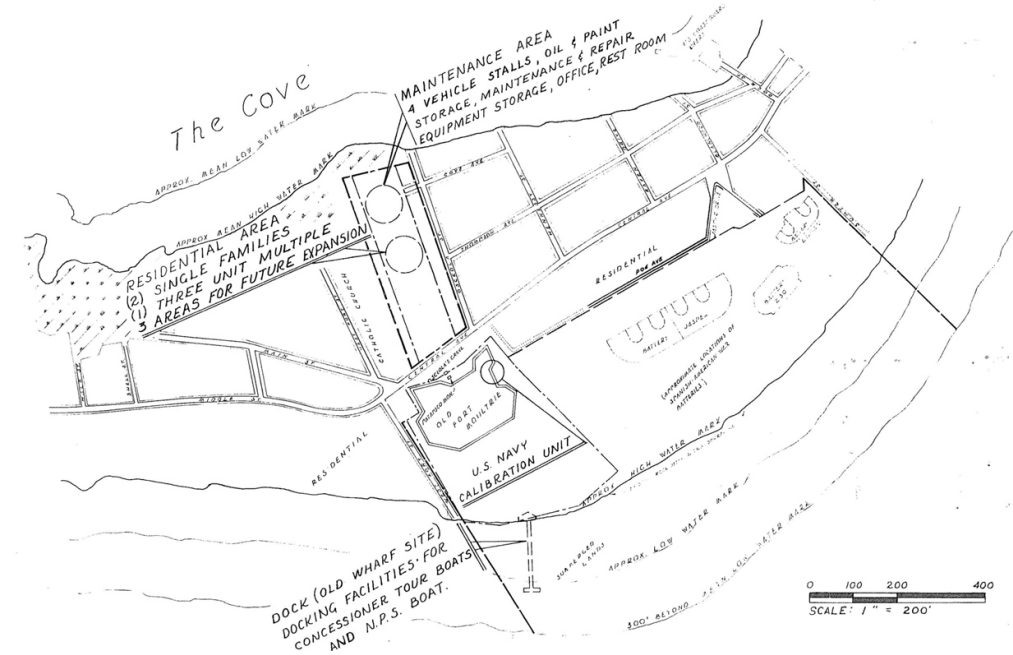 The Cove
APPROX. MEAN LOW WATER MARK
APPROX. MEAN HIGH WATER MARK
MAINTENANCE AREA
4 VEHICLE STALLS, OIL & PAINT
STORAGE, MAINTENANCE & REPAIR
EQUIPMENT STORAGE, OFFICE, REST ROOM
RESIDENTIAL AREA
(2) SINGLE FAMILIES
(1) THREE UNIT MULTIPLE
3 AREAS FOR FUTURE EXPANSION
COVE AVE
THOMPSON AVE
CENTRAL AVE
RESIDENTIAL
POE AVE
CATHOLIC CHURCH
CENTRAL AVE
MAIN ST
MIDDLE ST
OLD
FORT
MOULTRIE
U.S. NAVY
CALIBRATION UNIT
RESIDENTIAL
BATTERY JASPER
(APPROXIMATE LOCATIONS OF
SPANISH AMERICAN WAR
BATTERIES)
APPROX HIGH WATER MARK
APPROX. LOW WATER MARK
300' BEYOND MEAN LOW WATER MARK
SUBMERGED
LANDS
DOCK (OLD WHARF SITE)
DOCKING FACILITIES FOR
CONCESSIONER TOUR BOATS
AND N.P.S. BOAT.
0 100 200 400
SCALE: 1" = 200'